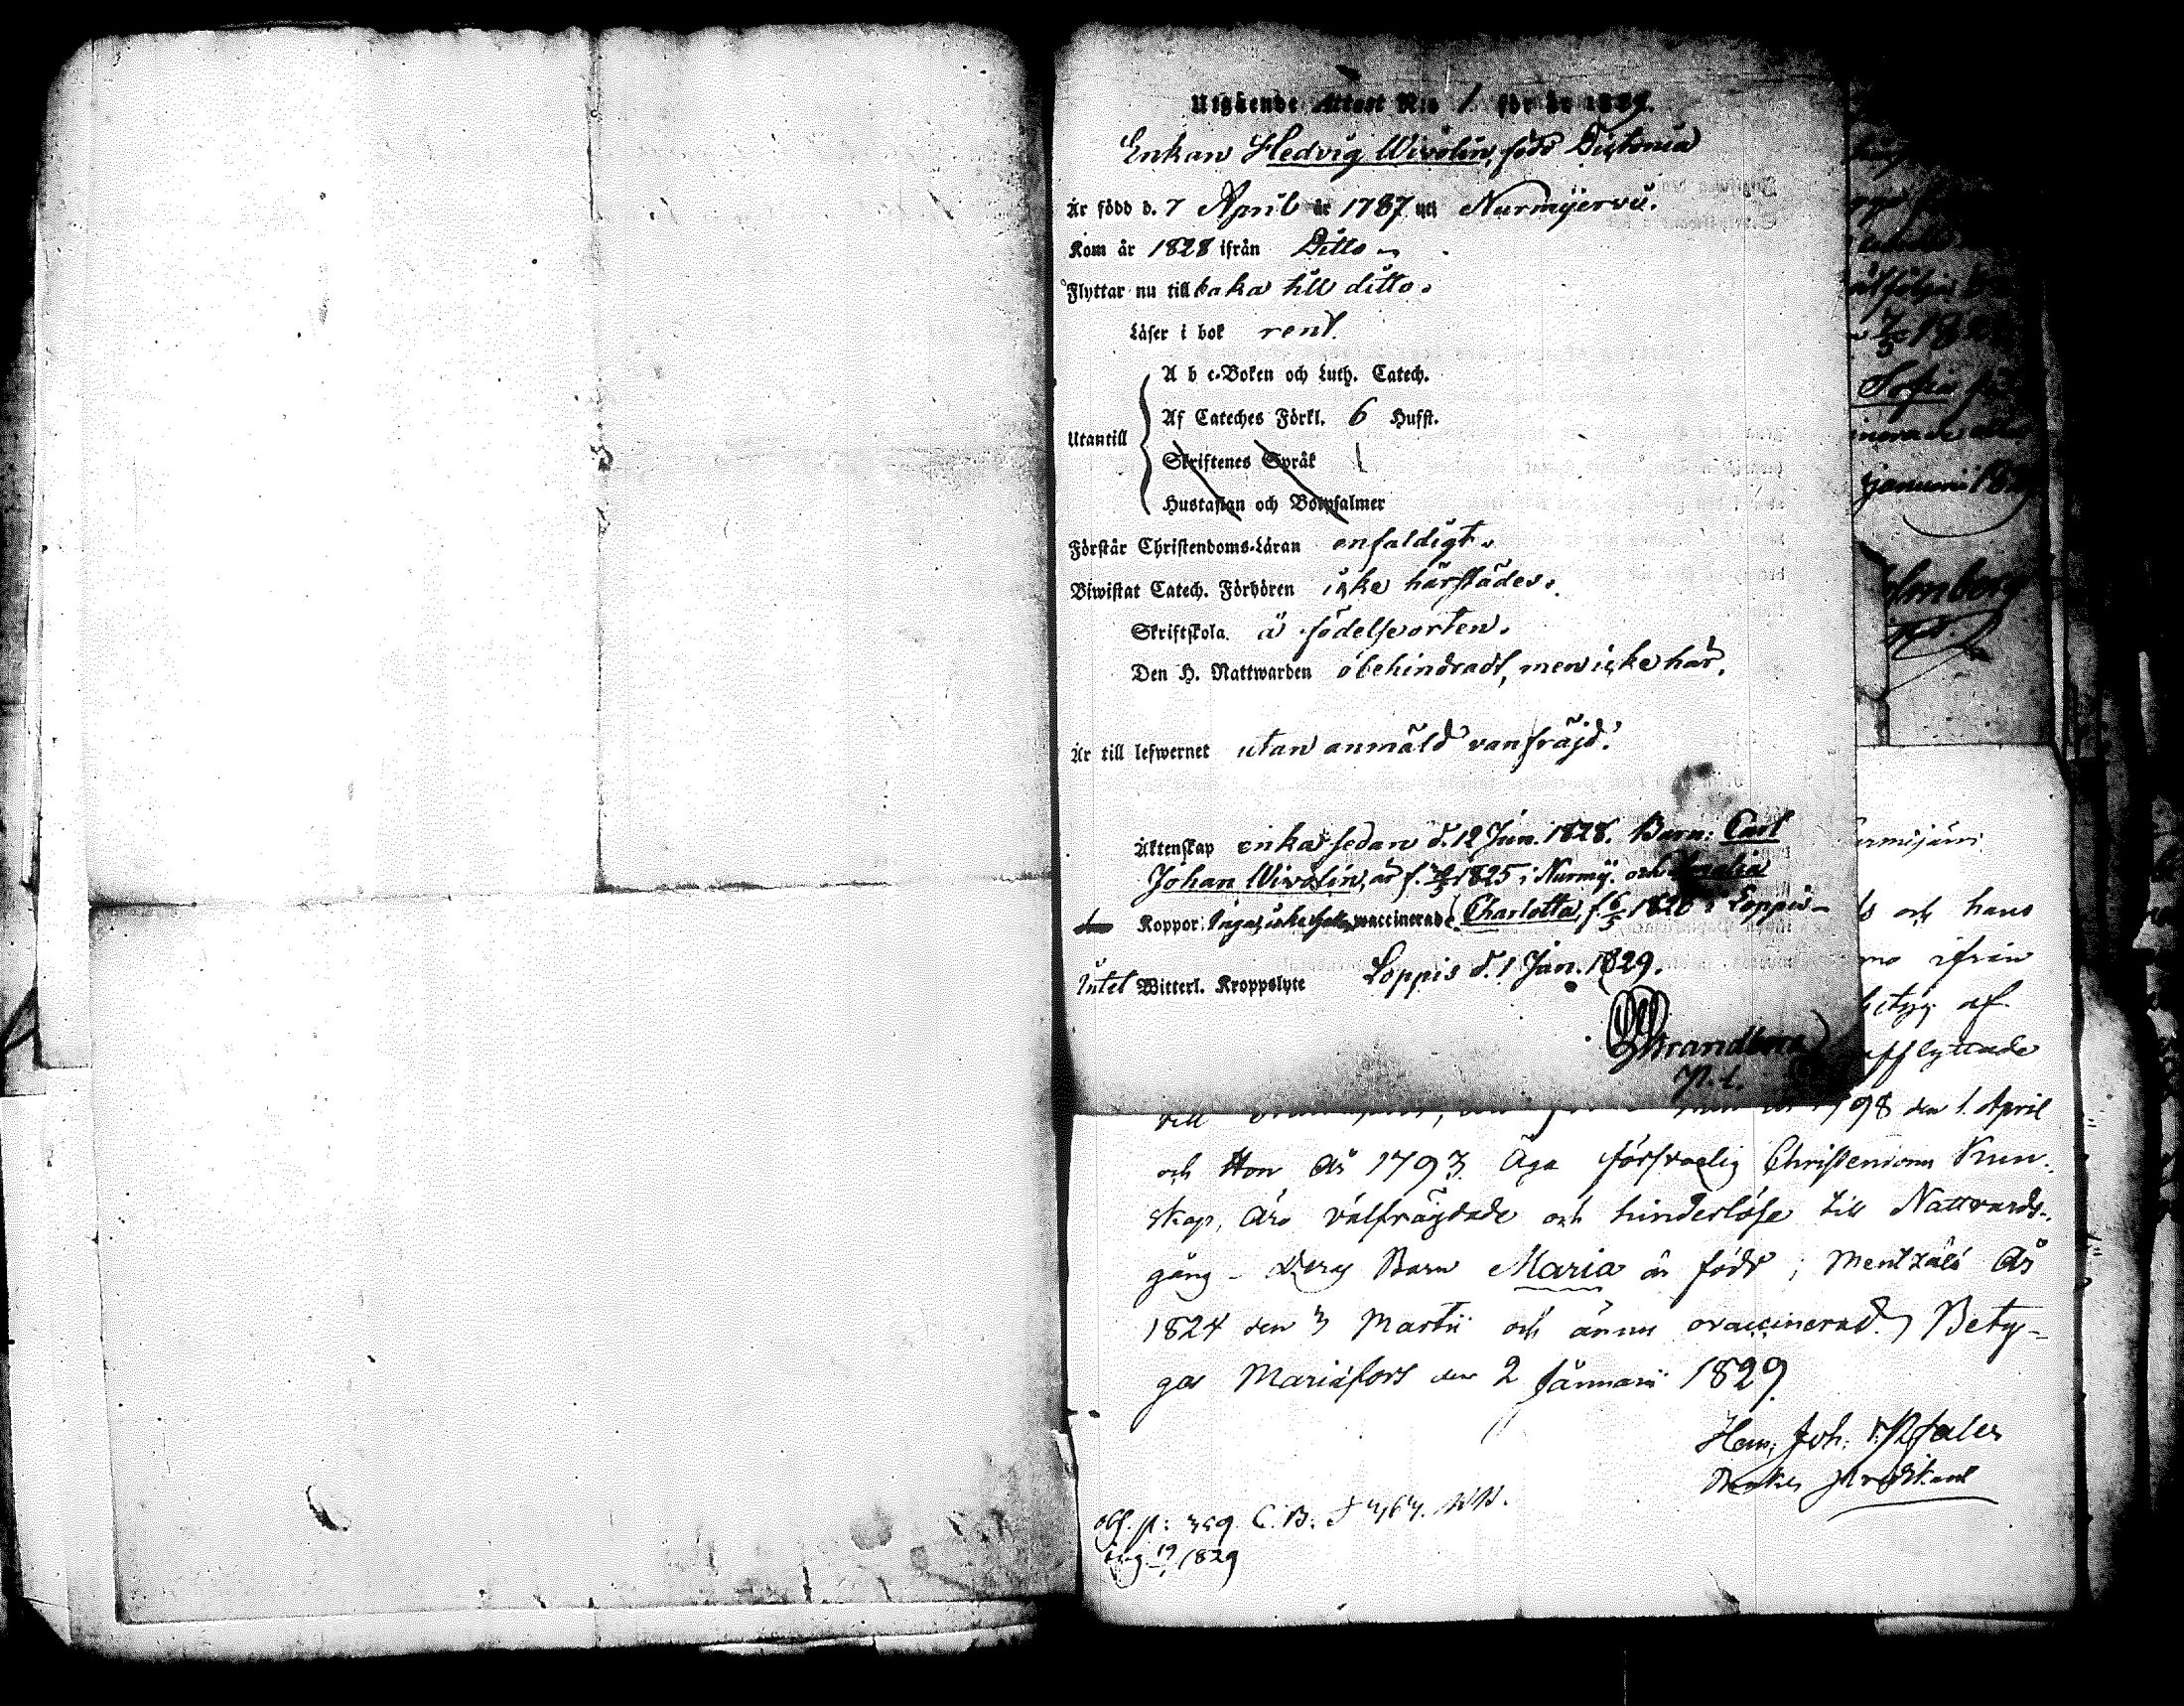 Utgående Attest N:o 1. för år 1829.
Enkan Hedvig Wivolin, född
Är född d. 7 April år 1787 uti Nurmijervi.
Kom år 1828 ifrån Ditto
Flyttar nu till baka till ditto.
Läser i bok rent.
A b c-Boken och Luth. Catech.
Af Cateches Förkl. 6 Hufst.
Utantill
Skriftenes Språk
Hustaflan och Botpsalmer
Förstår Christendoms-Läran enfaldigt.
Biwistat Catech. Förhören icke härstädes.
Skriftskola å födelseorten.
Den H. Nattwarden obehindradt, men icke här.
Är till lefwernet utan anmäld vanfräjd.
Äktenskap enka sedan d. 12 Jun. 1828. Barn: Carl
Johan Wivolin, är f. 1825 i Nurmij. och
Koppor: Inga, icke waccinerade. Charlotta, f. i Loppis
Intet Witterl. Kroppslyte Loppis d. 1 Jan. 1829.
Strandberg
P. l.
Sofia
januarii
Holmberg
och hans
ifrån
betyg af
afflyttade
till 1798 den 1. April
och Hon År 1793. Äga försvarlig Christendoms Kun-
skap, Äro välfrägdade och hinderlöse till Nattvards-
gång - Deras Barn Maria är född i Mentzälä År
1824 den 3 Martii och ännu ovaccinerad. Bety-
gas Mariæfors den 2 Januarii 1829
Hen. Joh.
Bruks Predikant
p: 359. C. B:
1829